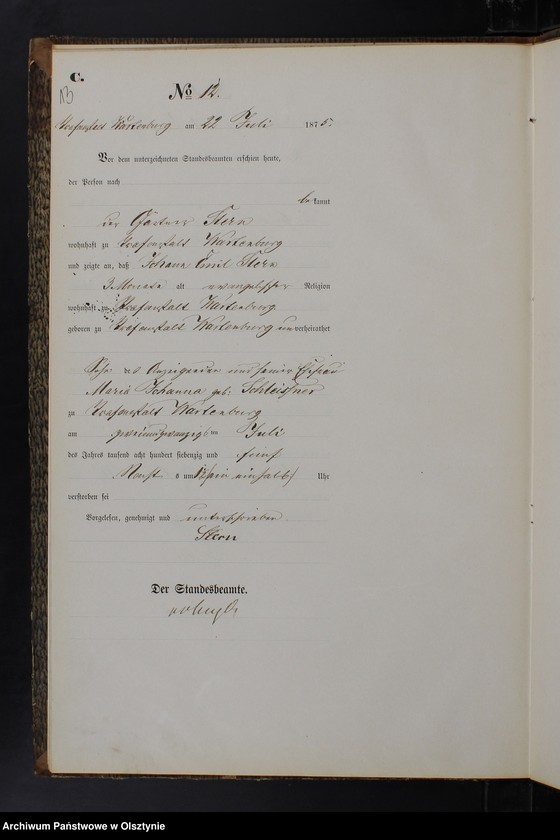 C.
13
No 12.
Strafanstalt Wartenburg am 22 Juli 1875.
Vor dem unterzeichneten Standesbeamten erschien heute,
der Person nach
be kannt
der Gärtner Stern
wohnhaft zu Strafanstalt Wartenburg
und zeigte an, daß Johann Emil Stern
3 Monate alt evangelischer Religion
wohnhaft zu Strafanstalt Wartenburg
geboren zu Strafanstalt Wartenburg un verheirathet
Sohn des Anzeigenden und seiner Ehefrau
Marie Johanna geb: Schleissner
zu Strafanstalt Wartenburg
am zweiundzwanzigsten Juli
des Jahres tausend acht hundert siebenzig und fünf
s um ein einhalb Uhr
verstorben sei
Vorgelesen, genehmigt und unterschrieben.
Stern
Der Standesbeamte.
Archiwum Państwowe w Olsztynie